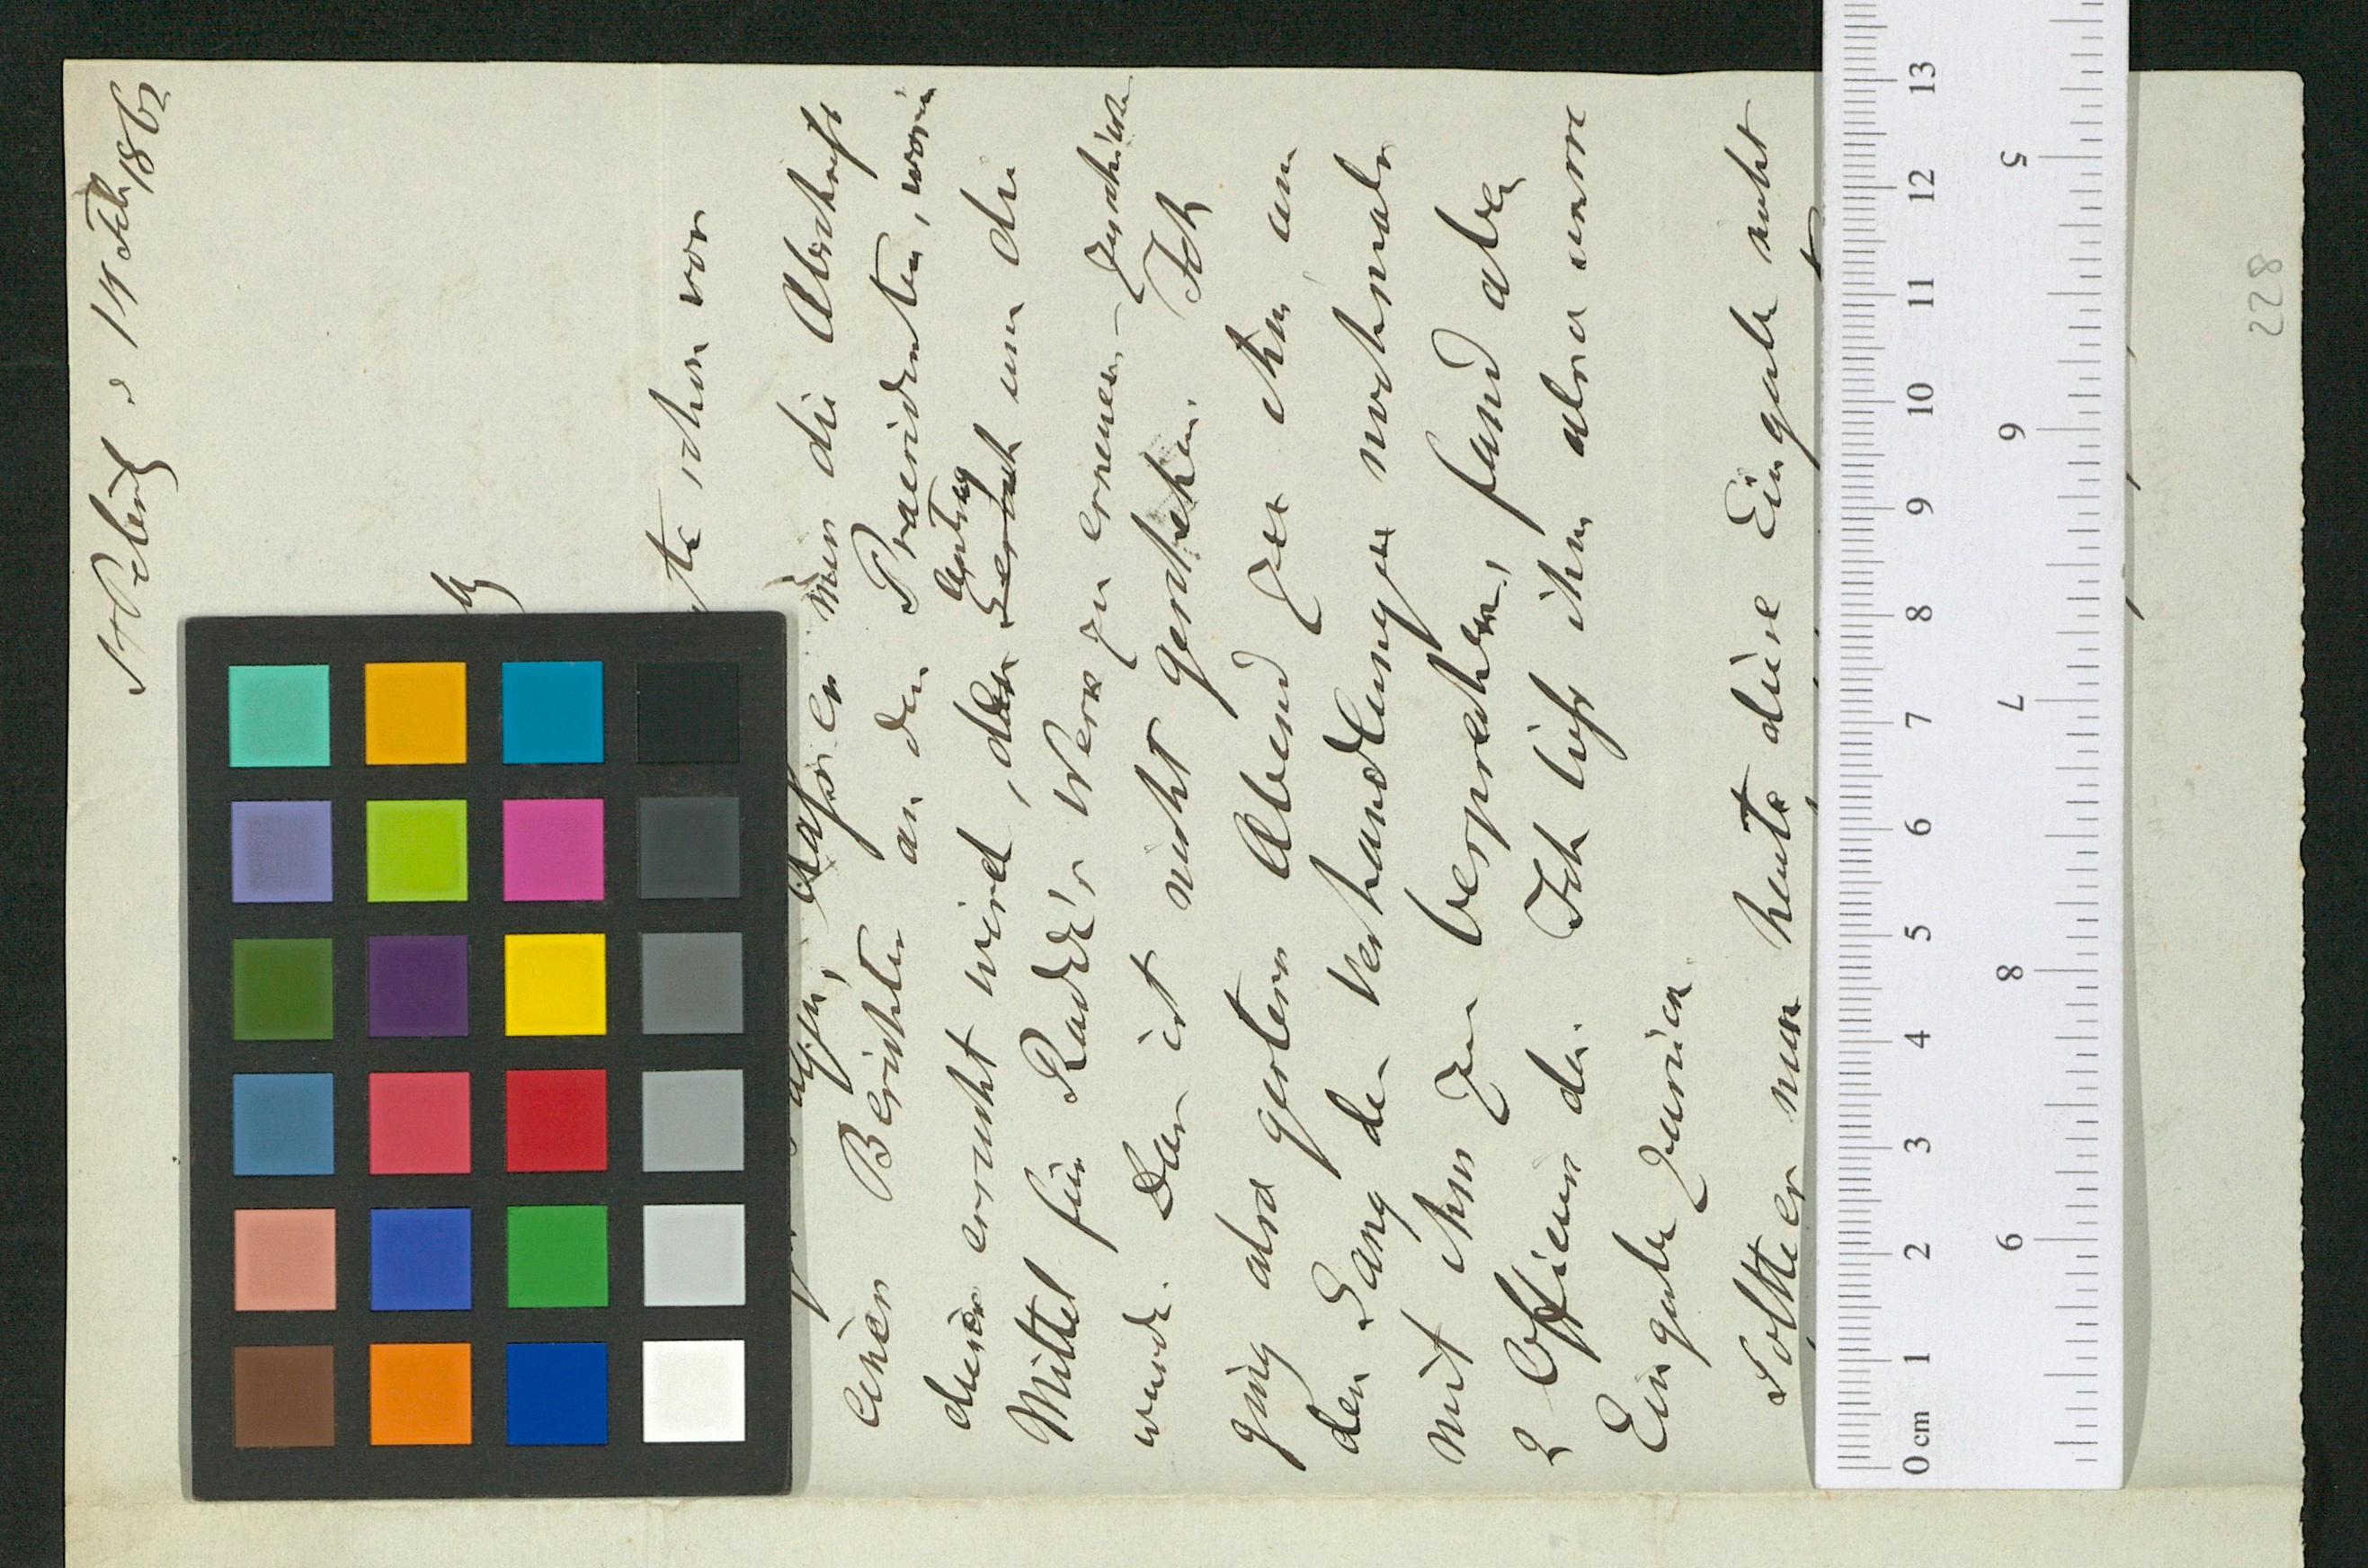 St Petersb d 14 Feb 1862
schon von
er nun die Abschrift
eines Berichtes an den Praesidenten, worin
dieser ersucht wird, den Gesuch Antrag um die
Mittel für Radde's Werk zu erneuern
wurde. Das ist nicht geschehen. Ich
ging also gestern Abend zu ihm um
den Gang der Verhandlungen nochmals
mit ihm zu besprechen, fand aber
2 Officiere da. Ich liess ihm also unsre
Eingabe zurück
Sollte er nun heute diese Eingabe nicht
228
0 cm 1 2 3 4 5 6 7 8 9 10 11 12 13
5 6 7 8 9